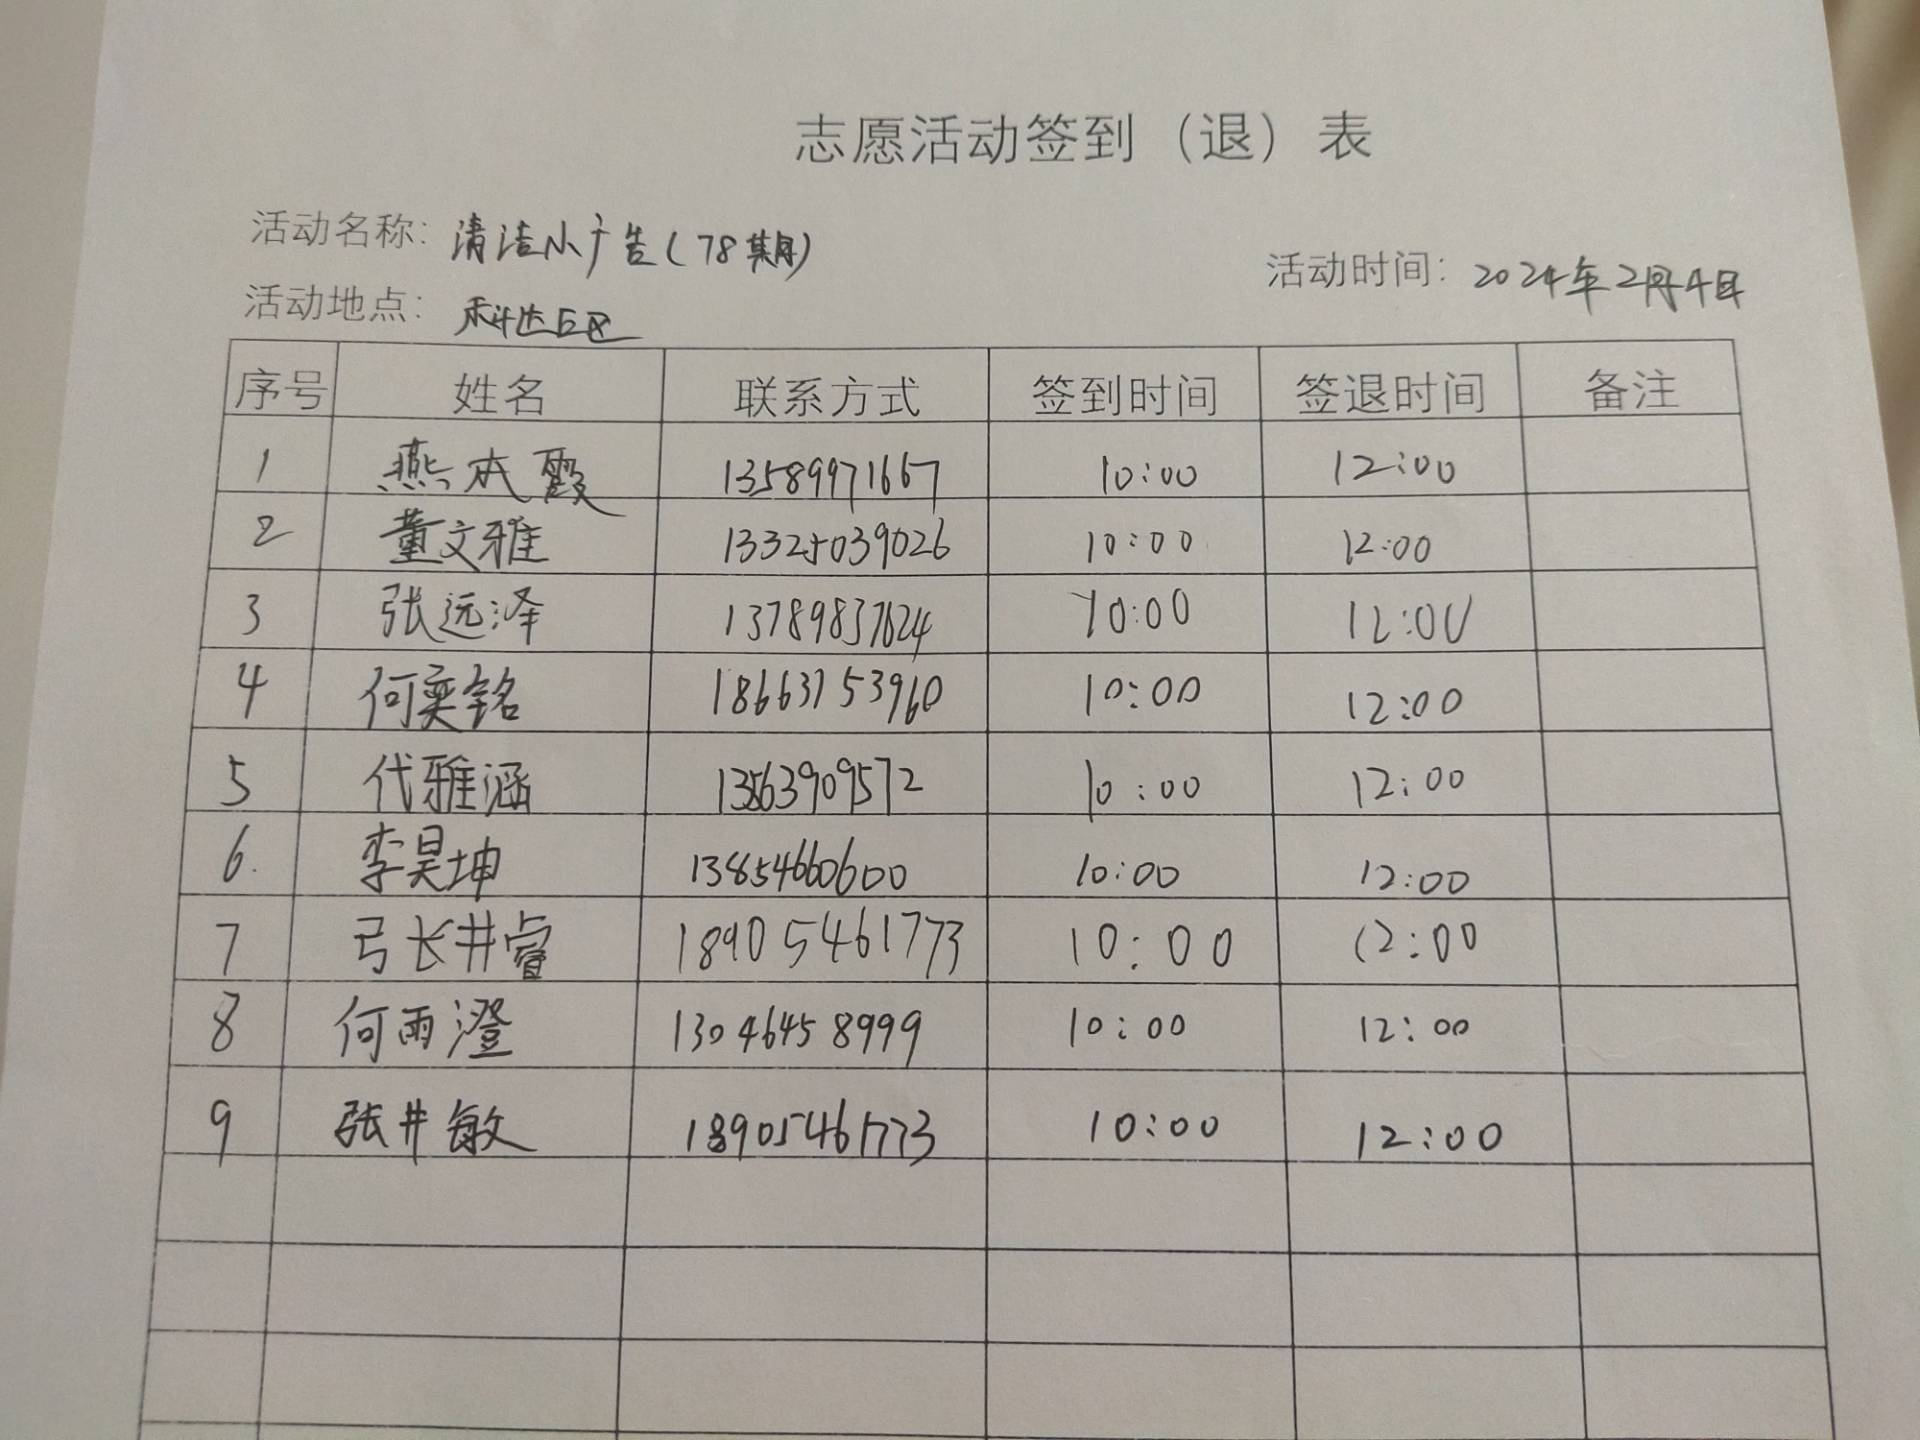 志愿活动签到（退）表
活动名称：清洁小广告(78期)
活动时间：2024年2月4日
活动地点：科达E区
序号 姓名 联系方式 签到时间 签退时间 备注
1 燕本霞 13589971667 10:00 12:00
2 董文雅 13325039026 10:00 12:00
3 张远泽 13789837624 10:00 12:00
4 何奕铭 18663753960 10:00 12:00
5 代雅涵 13563909572 10:00 12:00
6. 李昊坤 13854660600 10:00 12:00
7 张井睿 18905461773 10:00 12:00
8 何雨澄 13046458999 10:00 12:00
9 张井敏 18905461773 10:00 12:00